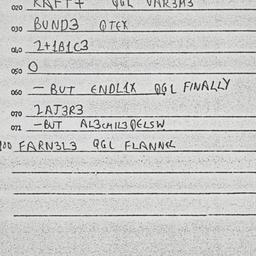 020 KRAFT+ QGL VAR3M3
030 BUND3 QTEX
040 2+1B1C3
050 O
060 - BUT ENDL1X QGL FINALLY
070 2AT3R3
071 -BUT AL3CMIL3QELSW
100 FARN3L3 QGL FLANNEL